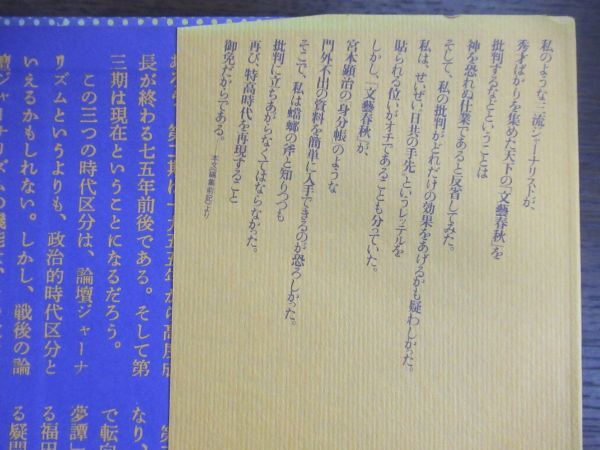 私のような三流ジャーナリストが、
秀才ばかりを集めた天下の「文藝春秋」を
批判するなどということは
神を恐れぬ仕業であると反省してみた。
そして、私の批判がどれだけの効果をあげるかも疑わしかった。
私は、せいぜい“日共の手先”というレッテルを
貼られる位いがオチであることも分っていた。
しかし、「文藝春秋」が、
宮本顕治の身分帳のような
門外不出の資料を簡単に入手できるのが恐ろしかった。
そこで、私は蟷螂の斧と知りつつも
批判に立ちあがらなくてはならなかった。
再び、特高時代を再現すること
御免だからである。
本文「編集前記」より
長が終わる七五年前後である。そして第
三期は現在ということになるだろう。
この三つの時代区分は、論壇ジャーナ
リズムというよりも、政治的時代区分と
いえるかもしれない。しかし、戦後の論
なり、
で転向
夢譚」
る福田
る疑問